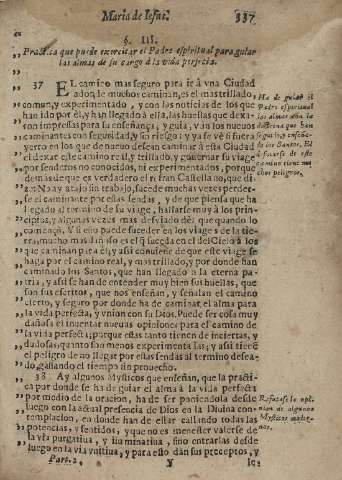 Maria de Iesus. 337
§. III.
Practica que puede exercitar el Padre espiritual para guiar
las almas de su cargo à la vida perfecta.
37 EL camino mas seguro para ir à vna Ciudad
adonde muchos caminan, es el mas trillado,
comun, y experimentado, y con las noticias de los que
han ido por él, y han llegado à ella, las huellas que dexa-
son impressas para su enseñança; y guia, vàn los nuevos
caminantes con seguridad, y sin riesgo: y ya se vè si fuera
yerro en los que de nuevo desean caminar à esta Ciudad
el dexar este camino real, y trillado, y governar su viage
por senderos no conocidos, ni experimentados, porque
demàs de que es verdadero el refran Castellano, que di-
ze: No ay atajo sin trabajo, sucede muchas vezes perder-
se el caminante por estas sendas, y de que piensa que ha
llegado al termino de su viage, hallarse muy à los prin-
cipios, y algunas vezes mas desviado del que quando lo
començò. Y si esto puede suceder en los viages de la tie-
rra, mucho mas daño es el que sucede en el del Cielo à los
que caminan para èl, y assi conviene de que este viage se
haga por el camino real, y mas trillado, y por donde han
caminado los Santos, que han llegado à la eterna pa-
tria, y assi se han de entender muy bien sus huellas, que
son sus escritos, que nos enseñan, y señalan el camino
cierto, y seguro por donde ha de caminar el alma para
la vida perfecta, y vnion con su Dios. Puede ser cosa muy
dañosa el inventar nuevas opiniones para el camino de
la vida perfecta; porque estas tanto tienen de inciertas, y
dudosas, quanto son menos experimentadas; y assi tienen
el peligro de no llegar por estas sendas al termino desea-
do, gastando el tiempo sin provecho.
38 Ay algunos Mysticos que enseñan, que la practi-
ca por donde se ha de guiar el alma à la vida perfecta
por medio de la oracion, ha de ser poniendola desde
luego con la actual presencia de Dios en la Divina con-
templacion, en donde han de estar callando todas las
potencias, y sentidos, y que no es menester valerse de
la via purgativa, y iluminativa, sino entrarlas desde
luego en la via vnitiva, y para esto dàn sus preceptos, y
Part. 2. Y
Ha de guiar el
Padre espiritual
las almas con la
doctrina que han
seguido, y enseña-
do los Santos. El
desviarse de este
camino tiene mu-
chos peligros.
Refutase la opi-
nion de algunos
Mysticos moder-
nos.